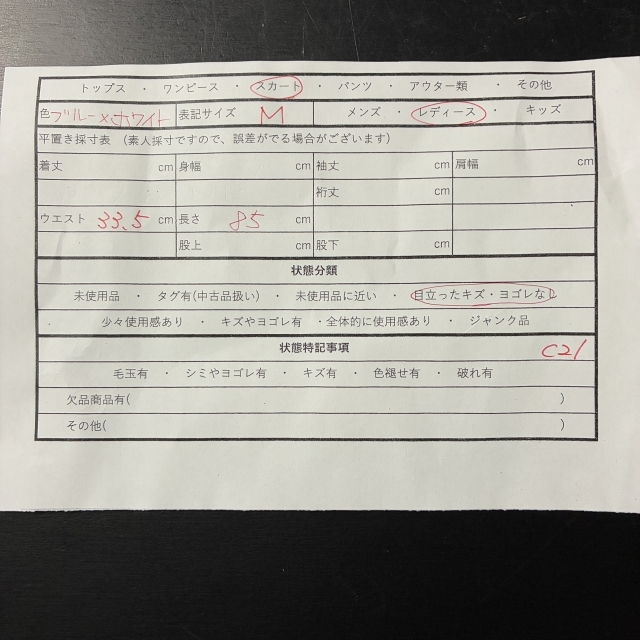 トップス ・ ワンピース ・ スカート ・ パンツ ・ アウター類 ・ その他
色 ブルー×ホワイト 表記サイズ M メンズ ・ レディース ・ キッズ
平置き採寸表 (素人採寸ですので、誤差がでる場合がございます)
着丈 cm 身幅 cm 袖丈 cm 肩幅 cm
裄丈 cm
ウエスト 33.5 cm 長さ 85 cm
股上 cm 股下 cm
状態分類
未使用品 ・ タグ有(中古品扱い) ・ 未使用品に近い ・ 目立ったキズ・ヨゴレなし
少々使用感あり ・ キズやヨゴレ有 ・全体的に使用感あり ・ ジャンク品
状態特記事項 C21
毛玉有 ・ シミやヨゴレ有 ・ キズ有 ・ 色褪せ有 ・ 破れ有
欠品商品有( )
その他( )